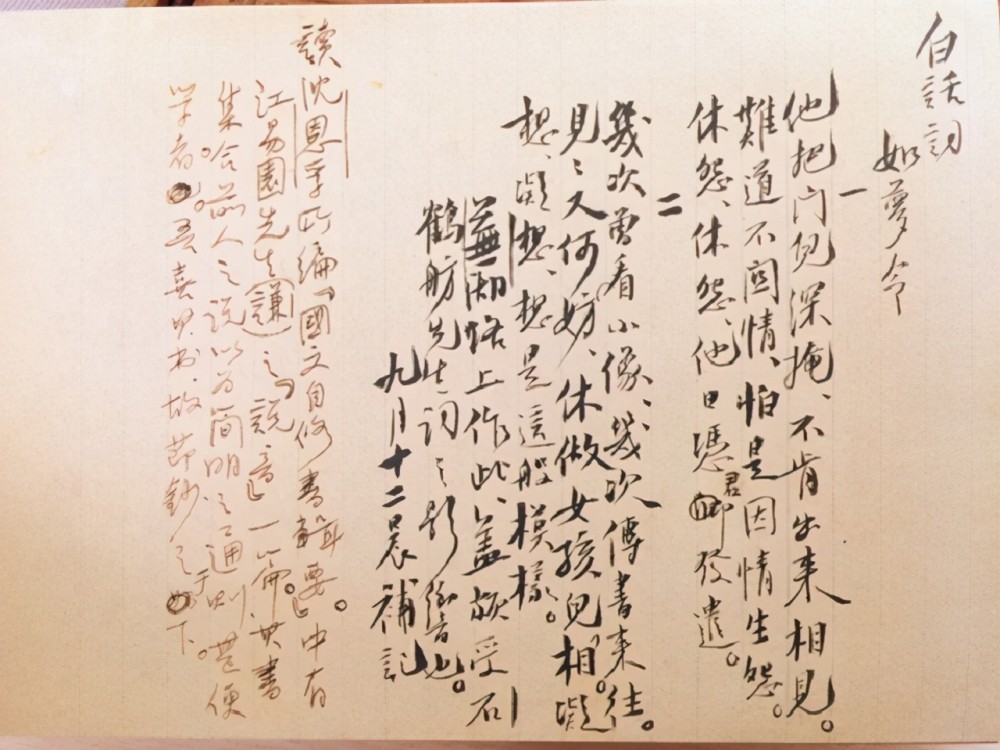 白話詞
如夢令
一
他把门兒深掩、不肯出来相見。
難道不関情、怕是因情生怨。
休怨、休怨、他日憑君發遣。
二
幾次曾看小像、幾次傳書来往。
見〻又何妨、休做女孩兒相。凝
想、凝想、想是這般模樣。
蕪湖恪上作此、蓋頗受石
鶴舫先生詞之影響也。
九月十二晨補記
讀沈恩孚所編「國文自修書輯要」中有
江易園先生(謙)之「說音」一篇。其書
集合前人之説以为簡明之通則、甚便
于学者。吾喜其书、故節鈔之如下。